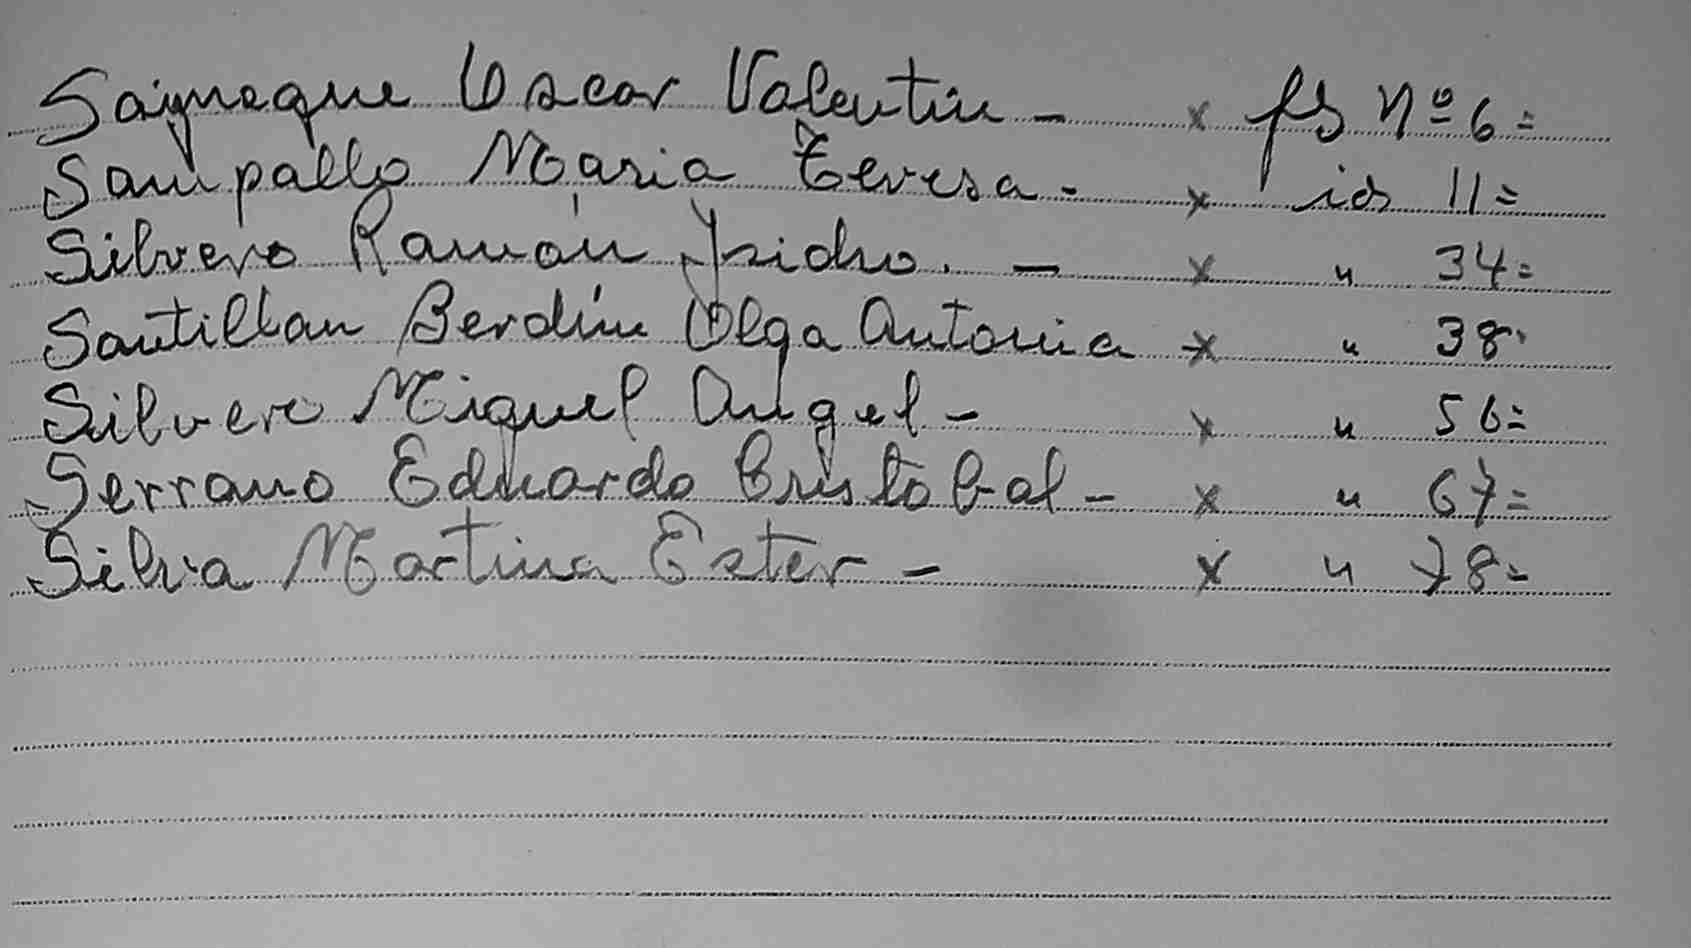 Saymeque Oscar Valentin - x fs Nº 6=
Sampallo Maria Teresa - x id 11=
Silvero Ramón Ysidro. - x " 34=
Santillan Berdín Olga Antonia x " 38-
Silvero Miguel Angel - x " 56=
Serrano Eduardo Cristobal - x " 67=
Silva Martina Ester - x " 78=